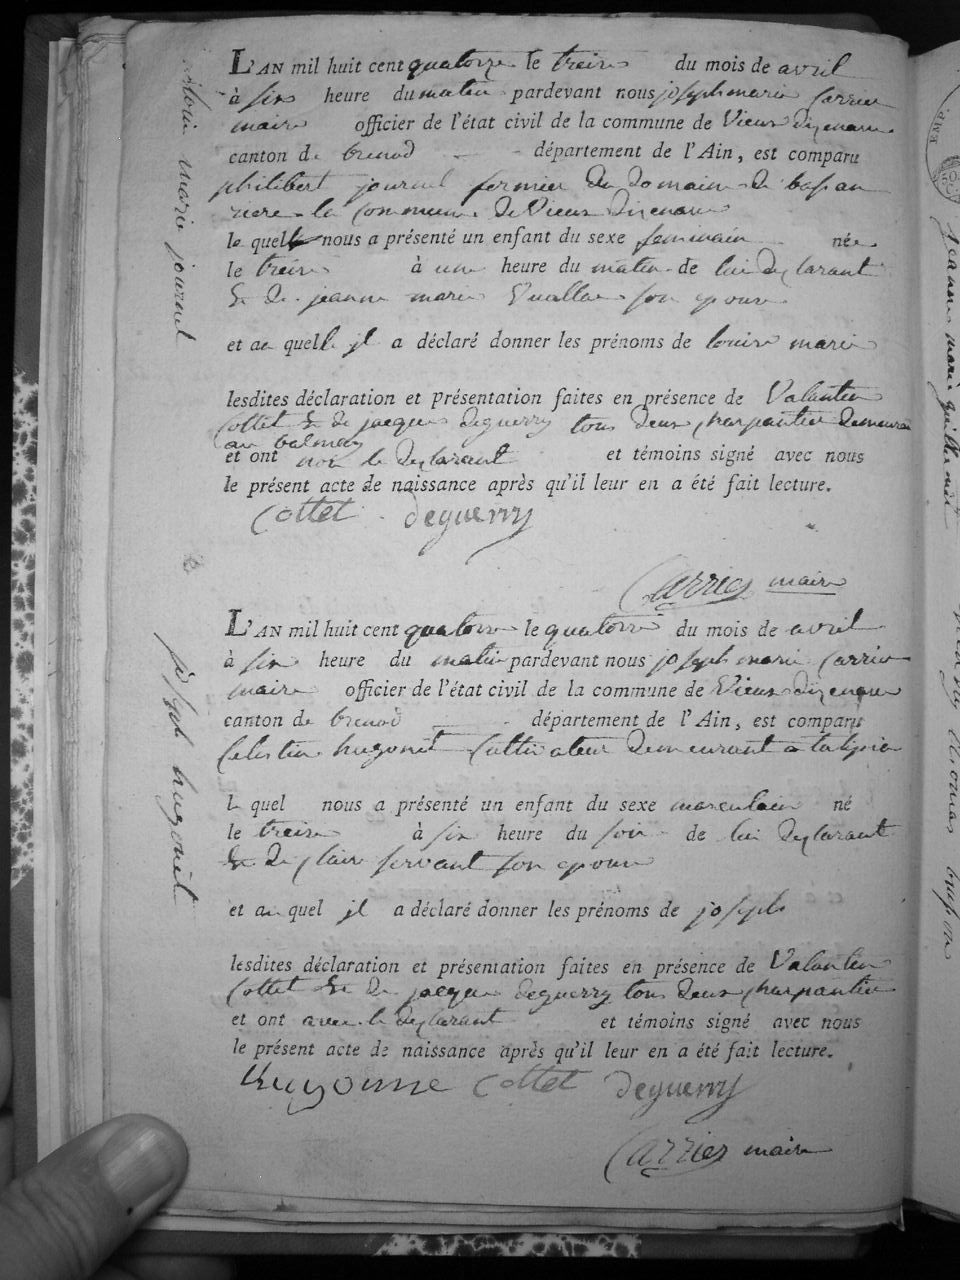 L'AN mil huit cent quatorze le treize du mois de avril
à six heure du matin pardevant nous joseph marie Carrier
maire officier de l'état civil de la commune de Vieux dizenave
canton de brenod département de l'Ain, est comparu
philibert journel fermier du domaine de
riere la commune de Vieux dizenave
le quel nous a présenté un enfant du sexe feminain née
le treize à une heure du matin de lui déclarant
& de jeanne marie son epouse
et au quel jl a déclaré donner les prénoms de louise marie
lesdites déclaration et présentation faites en présence de Valentin
Cottet & de jacques deguerry tous deux charpantier demeuran
au balmay
et ont non le declarant et témoins signé avec nous
le présent acte de naissance après qu'il leur en a été fait lecture.
Cottet deguerry
Carrier maire
marie journel
L'AN mil huit cent quatorze le quatorze du mois de avril
à six heure du matin pardevant nous joseph marie Carrier
maire officier de l'état civil de la commune de Vieux dizenave
canton de brenod département de l'Ain, est comparu
Celestin hugonet Cultivateur demeurant a
le quel nous a présenté un enfant du sexe masculain né
le treize à six heure du soir de lui declarant
& de claire servant son epouse
et au quel jl a déclaré donner les prénoms de joseph
lesdites déclaration et présentation faites en présence de Valentin
Cottet & de jacque deguerry tous deux charpantier
et ont avec le declarant et témoins signé avec nous
le présent acte de naissance après qu'il leur en a été fait lecture.
Cottet deguerry
Carrier maire
joseph hugonet